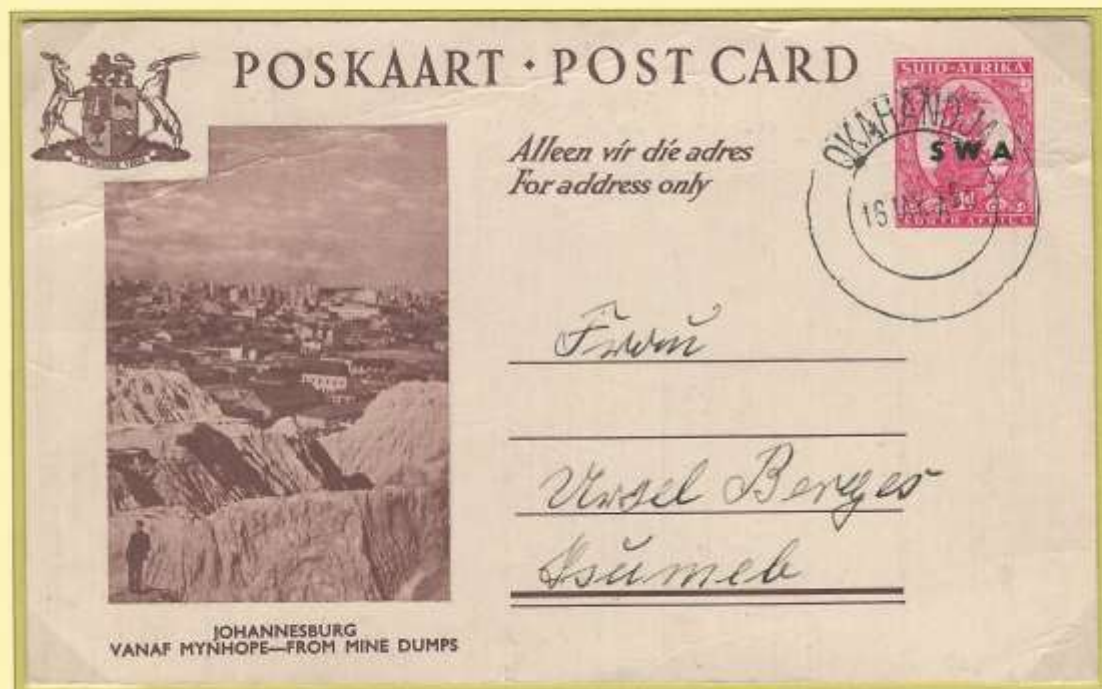 POSKAART · POST CARD
SUID-AFRIKA
SWA
OKAHANDJA
SOUTH AFRICA
Alleen vir die adres
For address only
Frau
Ursel Berges
Tsumeb
JOHANNESBURG
VANAF MYNHOPE—FROM MINE DUMPS